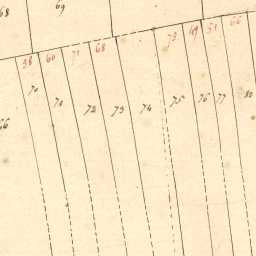 68
69
58 60 71 68 73 69 51 66
70 71 72 73 74 75 76 77 80
66